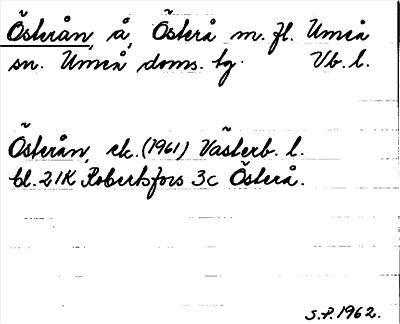 Österån, å, Österå m. fl. Umeå
sn. Umeå doms. hg. Vb. l.
Österån, ek. (1961) Västerb. l.
bl. 21K Robertsfors 3c Österå.
S.P. 1962.